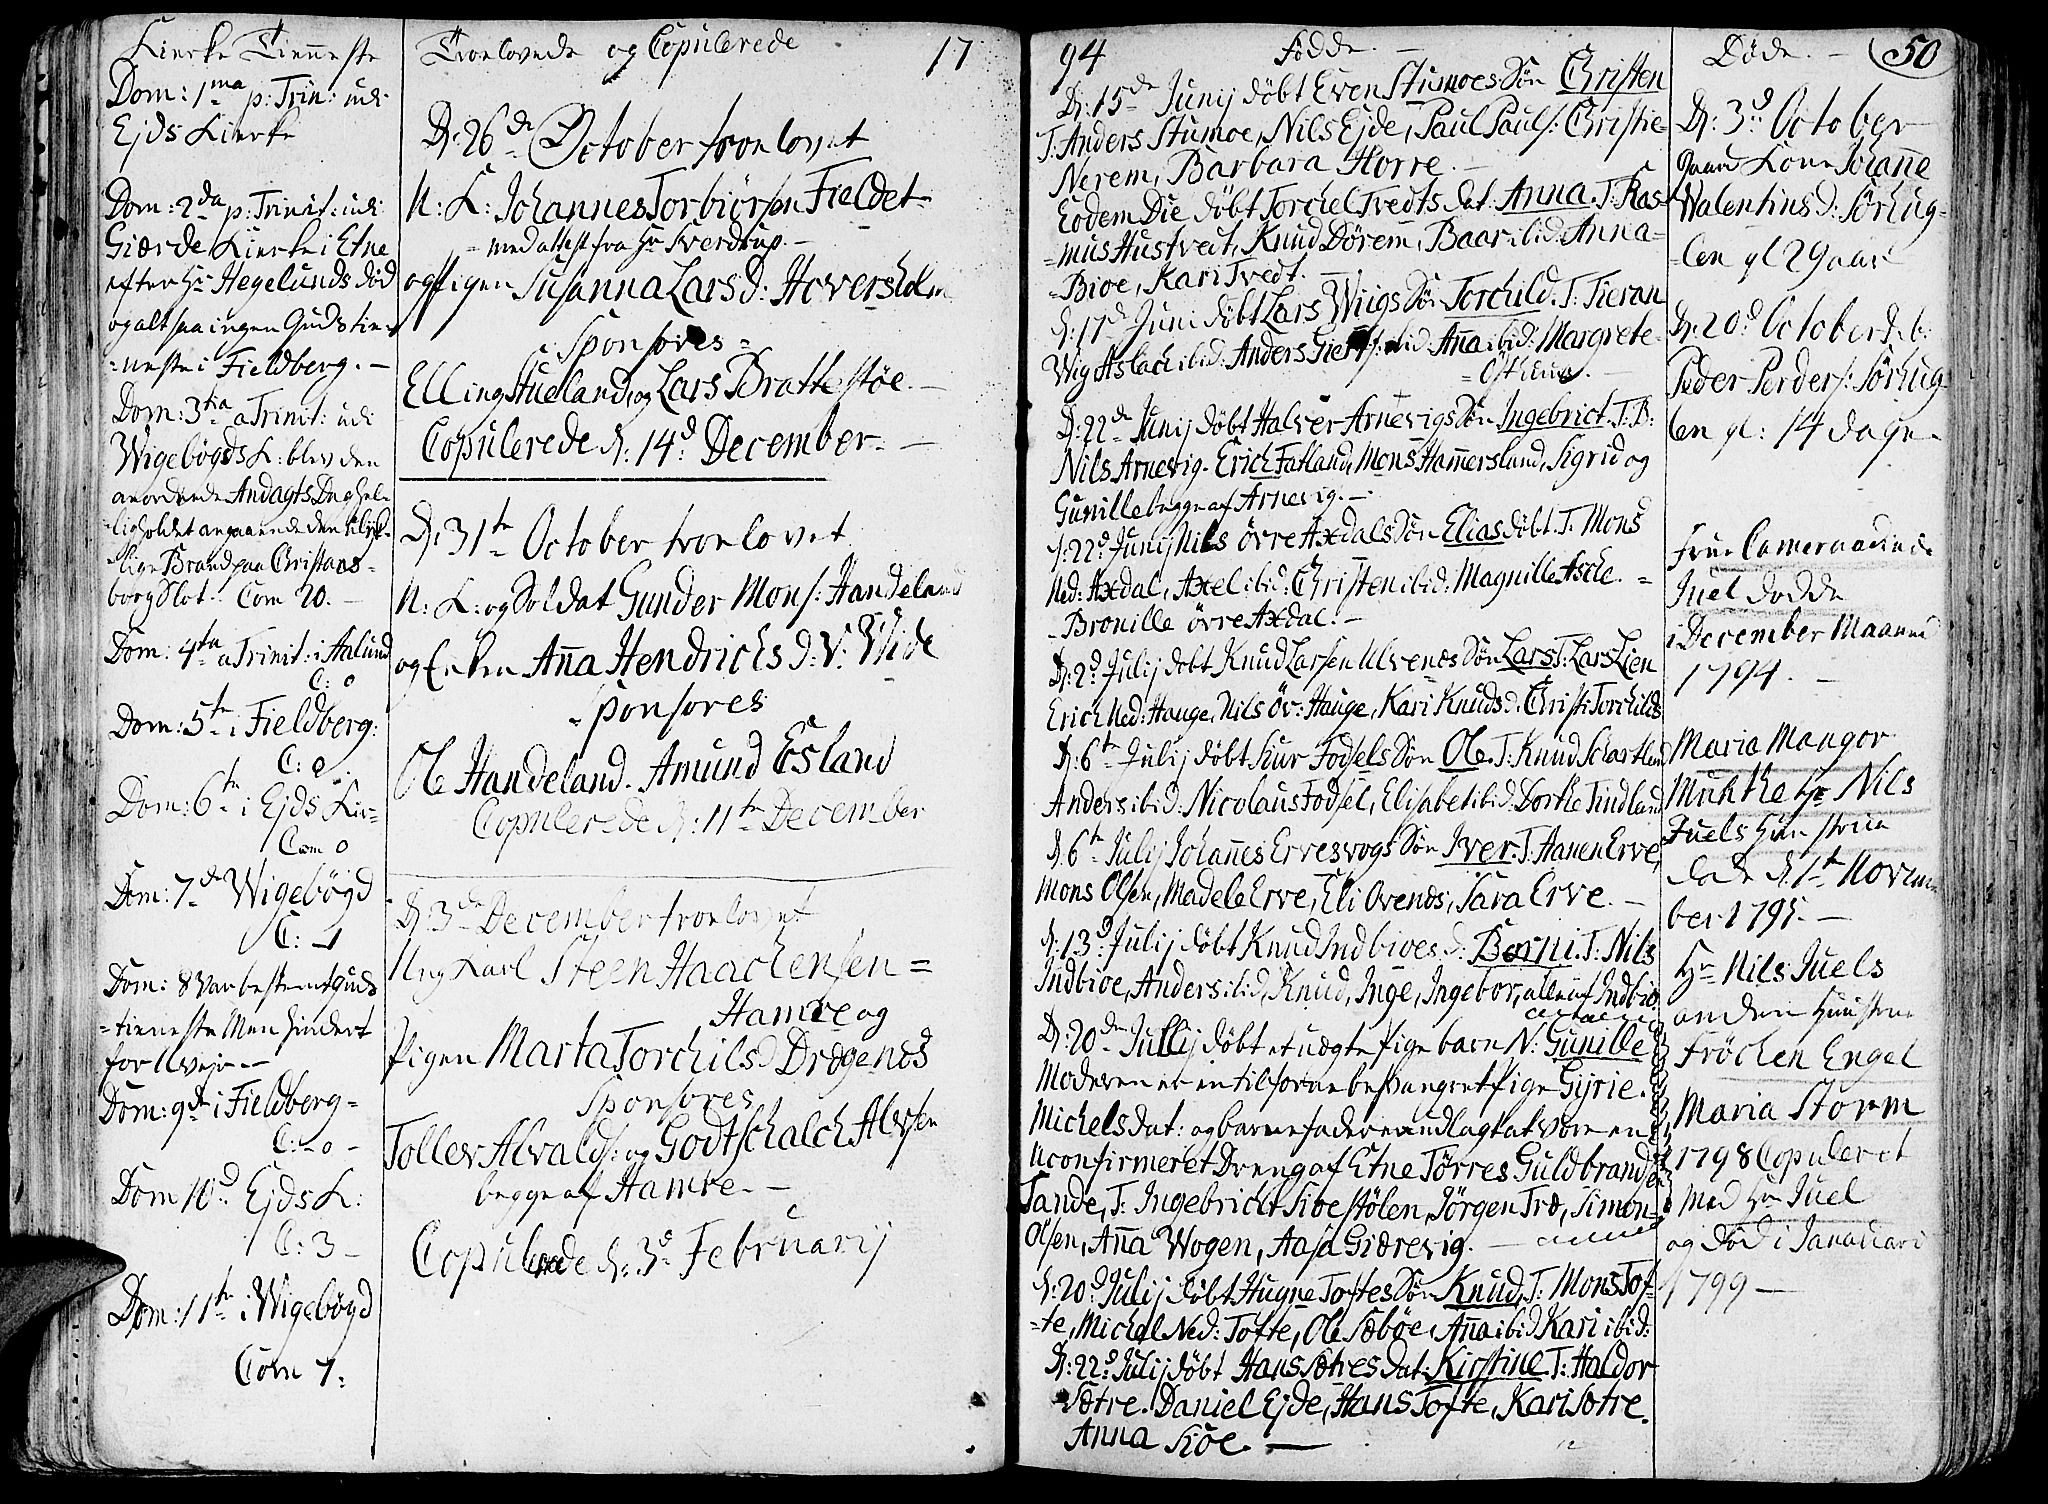 Kierke Tienneste
Dom: 1ma p: Trin: udi
Ejds Kierke
Dom: 2da p: Trinit: udi
Gierde Kierke i Etne
efter Hr Hegelunds död
og altsaa ingen Gudstie-
neste i Fieldberg. -
Dom: 3tia a Trinit: udi
Wigebögds K: blev den
anordnede Andagts Dag hel-
ligholdet angaaende den ulyk-
lige Brand paa Christians-
borg Slot. Com 20. -
Dom: 4ta a Trinit: i Aalund
C: 0
Dom: 5te i Fieldberg:
C: 0
Dom: 6te i Ejds Kir=
Com 0
Dom: 7de Wigebögd
C: 1
Dom: 8 Var bestemt guds
=tieneste Men hindert
for Uvejr. -
Dom: 9de i Fieldberg=
C: 0 -
Dom 10d Ejds K:
C: 3 -
Dom: 11te i Wigebögd
Com 7.
Troelovede og Copulerede 17
D: 26de October troelovet
U: K: Johannes Torbiörsen Fieldet
= med attest fra Hr Sverdrup. -
og Pigen Susanna Lars D: Hoversholm
Sponsores =
Elling Stueland, og Lars Brattestöe. -
Copulerede d: 14d December. -
D: 31te October troelovet
U: K: og Soldat Gunder Mons: Handeland
og Enken Aña Hendrichs D: V: Wide
Sponsores
Ole Handeland. Amund Esland
Copulerede d: 11te December
D: 3de December troelovet
Ung Karl Steen Haachensen =
Hamre og
Pigen Marta Torchils D Drægenes
Sponsores
Tollev Alvalds: og Godtschalch Alvsen
begge af Hamre. -
Copulerede d: 3d Februarij
94 Födde. -
D: 15de Junij döbt Even Stumoes Sön Christen
T: Anders Stumoe, Nils Ejde, Paul Pauls: Christie=
Nerem, Barbara Horre. -
Eodem Die döbt Torchel Tvedts dat. Anna. T: Ras=
mus Hustvedt, Knud Dörem, Baar ibid: Anna=
=Bioe, Kari Tvedt. -
d: 17d Juni döbt Lars Wiigs Sön Torchild. T: Tieran
Wig Aslach ibid: Anders ibid: Aña ibid: Margrete=
D: 22de Junij döbt Halver Arnevigs Sön Ingebrict. T: B:
Nils Arnevig. Erich Fatland, Mons Hamersland, Sigrid og
Gunille begge af Arnevig. -
d: 22d Junij Nils övre Axdals Sön Elias döbt. T: Mons
Ned: Axdal, Axel ibid: Christen ibid: Magnille Asche. =
Bronille övre Axdal. -
D: 2d Julij döbt Knud Larsen Ulvenes Sön Lars T: Lars Lien
Erich Ned: Hauge, Nils Öv: Hauge, Kari Knuds d. Christi Torchilds
D: 6te Julij döbt Siur Fodsels Sön Ole. T: Knud
Anders ibid: Nicolaus Fodsel, Elisabet ibid: Dorthe Tindland
d. 6te Julij Johañes Ervesvogs Sön Iver. T: Haaen Erve,
Mons Olsen, Madele Erve, Eli Ovenes, Sara Erve. -
d: 13d Julij döbt Knud Indbioes d: Berni. T: Nils
Indbioe, Anders ibid, Knud, Inge, Ingebor, alle af Indbio
D: 20de Julij döbt et uægte Pige barn N: Gunille
Moderen er en tilforne besvangret Pige Gyrie.
Michels dat: og barnefader er udlagt at være en
Uconfirmeret Dreng af Etne Törres Guldbrands:
Sande, T: Ingebricht Sioestölen, Jörgen Træ, Simon
Olsen, Aña Wogen, Aasa Gierevig. -
d: 20d Julij döbt Hugne Toftes Sön Knud, T: Mons Tof-
=te, Michel Ned: Tofte, Ole Sæböe, Aña ibid Kari ibid:
D: 22d Julij döbt Hans Sætres Dat: Kirstine T: Haldor
Sætre. Daniel Ejde, Hans Tofte, Kari Sætre.
Anna Siöe. -
Döde. - 50
D: 3d October
Kone Johañe
Valentins d: Sörhug=
len gl 29 aar
D: 20d October d. b:
Peder Peders: Sörhug=
len gl: 14 dage.
Frue Cameraadinde
Juel dödde
i December Maaned
1794. -
Maria Mangor
Munthe Hr Nils
Juels Hustrue
döde d. 1te Novem
ber 1795. -
Hr Nils Juels
anden Hustrue
Fröchen Engel
Maria Storm
1798 Copuleret
Med Hr Juel
og död i Januari
1799 -